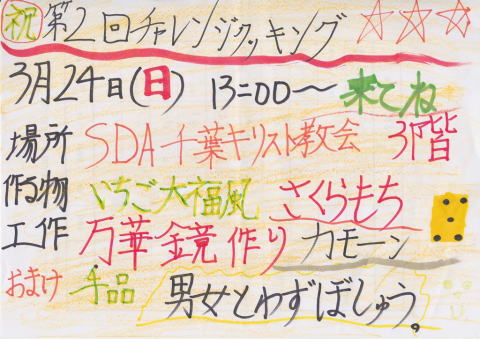 祝 第2回チャレンジクッキング
3月24日(日) 13:00〜 来てね
場所 SDA千葉キリスト教会 3階
作る物 いちご大福風 さくらもち
工作 万華鏡作り カモーン
おまけ 手品 男女とわずぼしゅう。